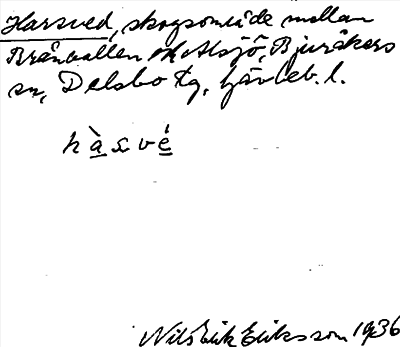 Harsved, skogsområde mellan
Brånvallen och Alsjö, Bjuråkers
sn, Delsbo tg, Gävleb. l.
hàsvé
Nils Erik Eriksson 1936